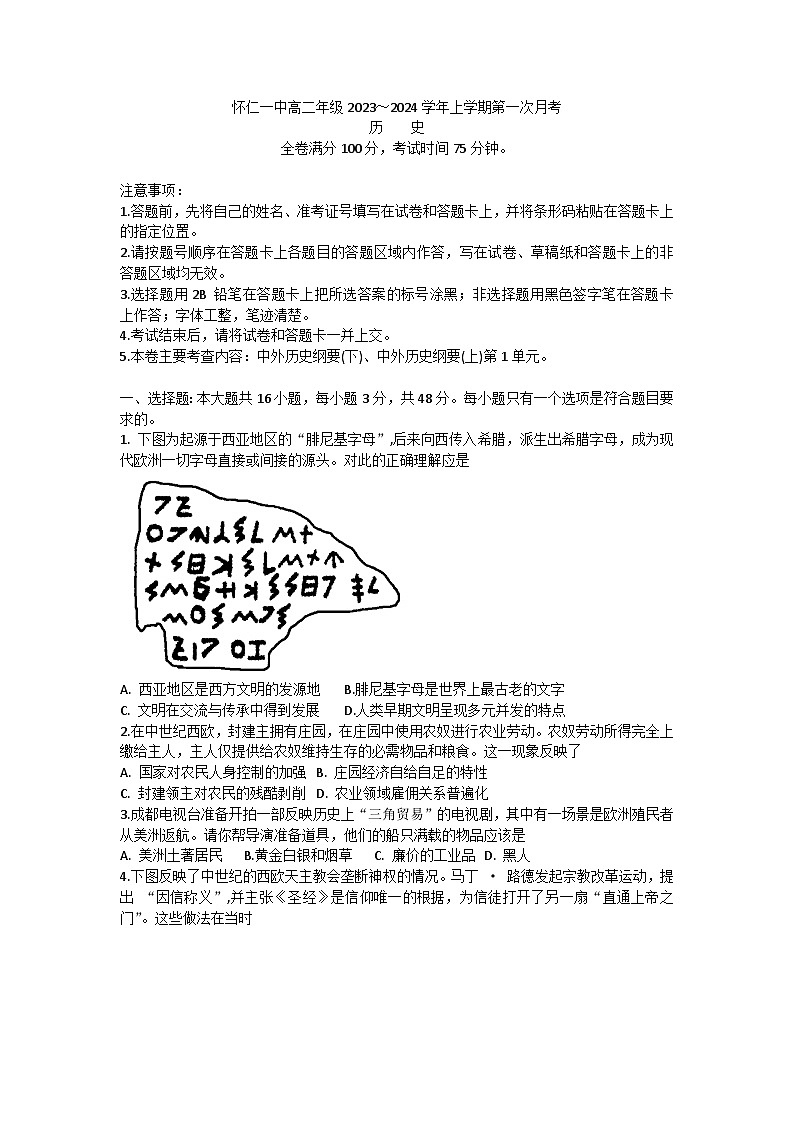 怀仁一中高二年级 2023～2024 学年上学期第一次月考
历 史
全卷满分 100 分，考试时间 75 分钟。
注意事项：
1.答题前，先将自己的姓名、准考证号填写在试卷和答题卡上，并将条形码粘贴在答题卡上
的指定位置。
2.请按题号顺序在答题卡上各题目的答题区域内作答，写在试卷、草稿纸和答题卡上的非
答题区域均无效。
3.选择题用 2B 铅笔在答题卡上把所选答案的标号涂黑；非选择题用黑色签字笔在答题卡
上作答；字体工整，笔迹清楚。
4.考试结束后，请将试卷和答题卡一并上交。
5.本卷主要考查内容：中外历史纲要(下)、中外历史纲要(上)第 1 单元。
一、选择题：本大题共 16 小题，每小题 3 分，共 48 分。每小题只有一个选项是符合题目要
求的。
1. 下图为起源于西亚地区的“腓尼基字母”,后来向西传入希腊，派生出希腊字母，成为现
代欧洲一切字母直接或间接的源头。对此的正确理解应是
A. 西亚地区是西方文明的发源地 B.腓尼基字母是世界上最古老的文字
C. 文明在交流与传承中得到发展 D.人类早期文明呈现多元并发的特点
2.在中世纪西欧，封建主拥有庄园，在庄园中使用农奴进行农业劳动。农奴劳动所得完全上
缴给主人，主人仅提供给农奴维持生存的必需物品和粮食。这一现象反映了
A. 国家对农民人身控制的加强 B. 庄园经济自给自足的特性
C. 封建领主对农民的残酷剥削 D. 农业领域雇佣关系普遍化
3.成都电视台准备开拍一部反映历史上“三角贸易”的电视剧，其中有一场景是欧洲殖民者
从美洲返航。请你帮导演准备道具，他们的船只满载的物品应该是
A. 美洲土著居民 B.黄金白银和烟草 C. 廉价的工业品 D. 黑人
4.下图反映了中世纪的西欧天主教会垄断神权的情况。马丁 • 路德发起宗教改革运动，提
出 “因信称义”,并主张《圣经》是信仰唯一的根据，为信徒打开了另一扇“直通上帝之
门”。这些做法在当时